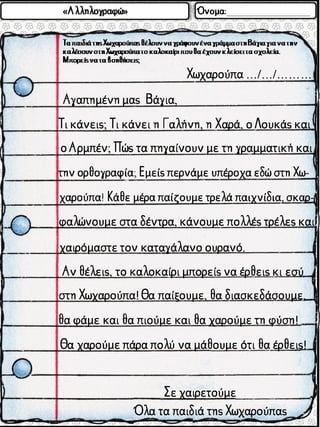 «Αλληλογραφώ»
Όνομα:
Τα παιδιά της Χωχαρούπας θέλουν να γράψουν ένα γράμμα στη Βάγια για να την
καλέσουν στη Χωχαρούπα το καλοκαίρι που θα έχουν κλείσει τα σχολεία.
Μπορείς να τα βοηθήσεις;
Χωχαρούπα …/…/………
Αγαπημένη μας Βάγια,
Τι κάνεις; Τι κάνει η Γαλήνη, η Χαρά, ο Λουκάς και
ο Αρμπέν; Πώς τα πηγαίνουν με τη γραμματική και
την ορθογραφία; Εμείς περνάμε υπέροχα εδώ στη Χω-
χαρούπα! Κάθε μέρα παίζουμε τρελά παιχνίδια, σκαρ-
φαλώνουμε στα δέντρα, κάνουμε πολλές τρέλες και
χαιρόμαστε τον καταγάλανο ουρανό.
Αν θέλεις, το καλοκαίρι μπορείς να έρθεις κι εσύ
στη Χωχαρούπα! Θα παίξουμε, θα διασκεδάσουμε,
θα φάμε και θα πιούμε και θα χαρούμε τη φύση!
Θα χαρούμε πάρα πολύ να μάθουμε ότι θα έρθεις!
Σε χαιρετούμε
Όλα τα παιδιά της Χωχαρούπας